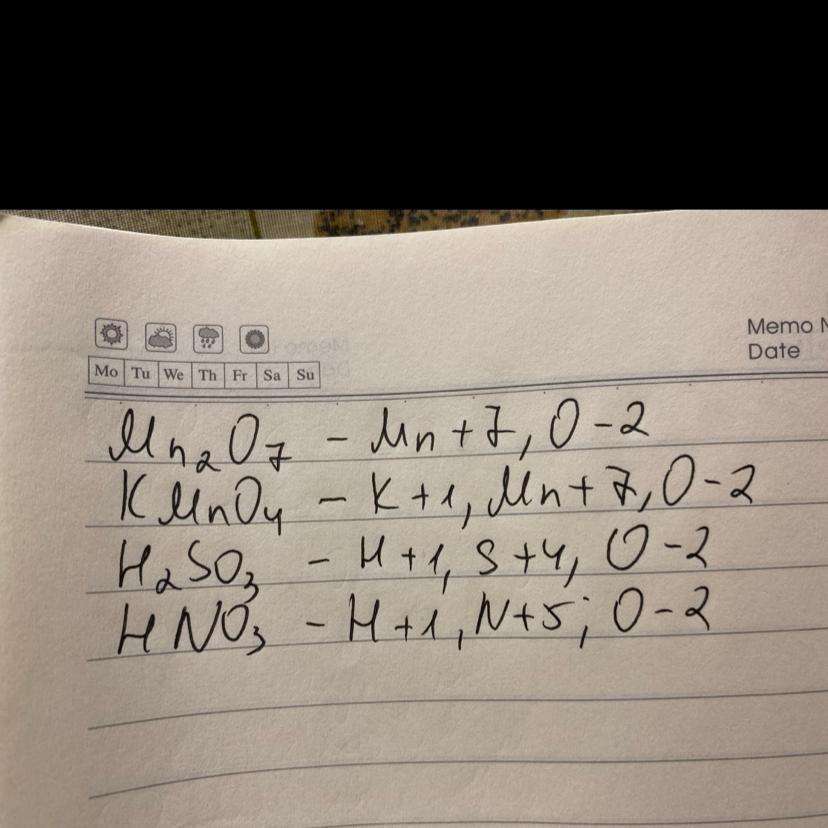 Memo N
Date
Mo Tu We Th Fr Sa Su
Mn₂O₇ - Mn+7, O-2
KMnO₄ - K+1, Mn+7, O-2
H₂SO₃ - H+1, S+4, O-2
HNO₃ - H+1, N+5; O-2